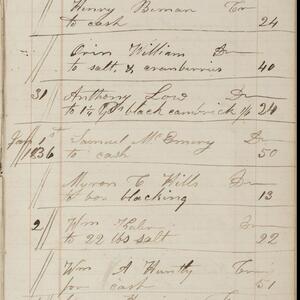 Henry Beman Dr
to cash 24
Orin William Dr
to salt, & cranberries 40
31 Anthony Low Dr
to 1¼ yds black cambrick 1/6 24
Jan 1st Samuel McEmery Dr
1836 to cash 50
Myron C Wills Dr
to box blacking 13
2 Wm Dr
to 22 lbs salt 22
Wm A Huntly Cr
for cash 51